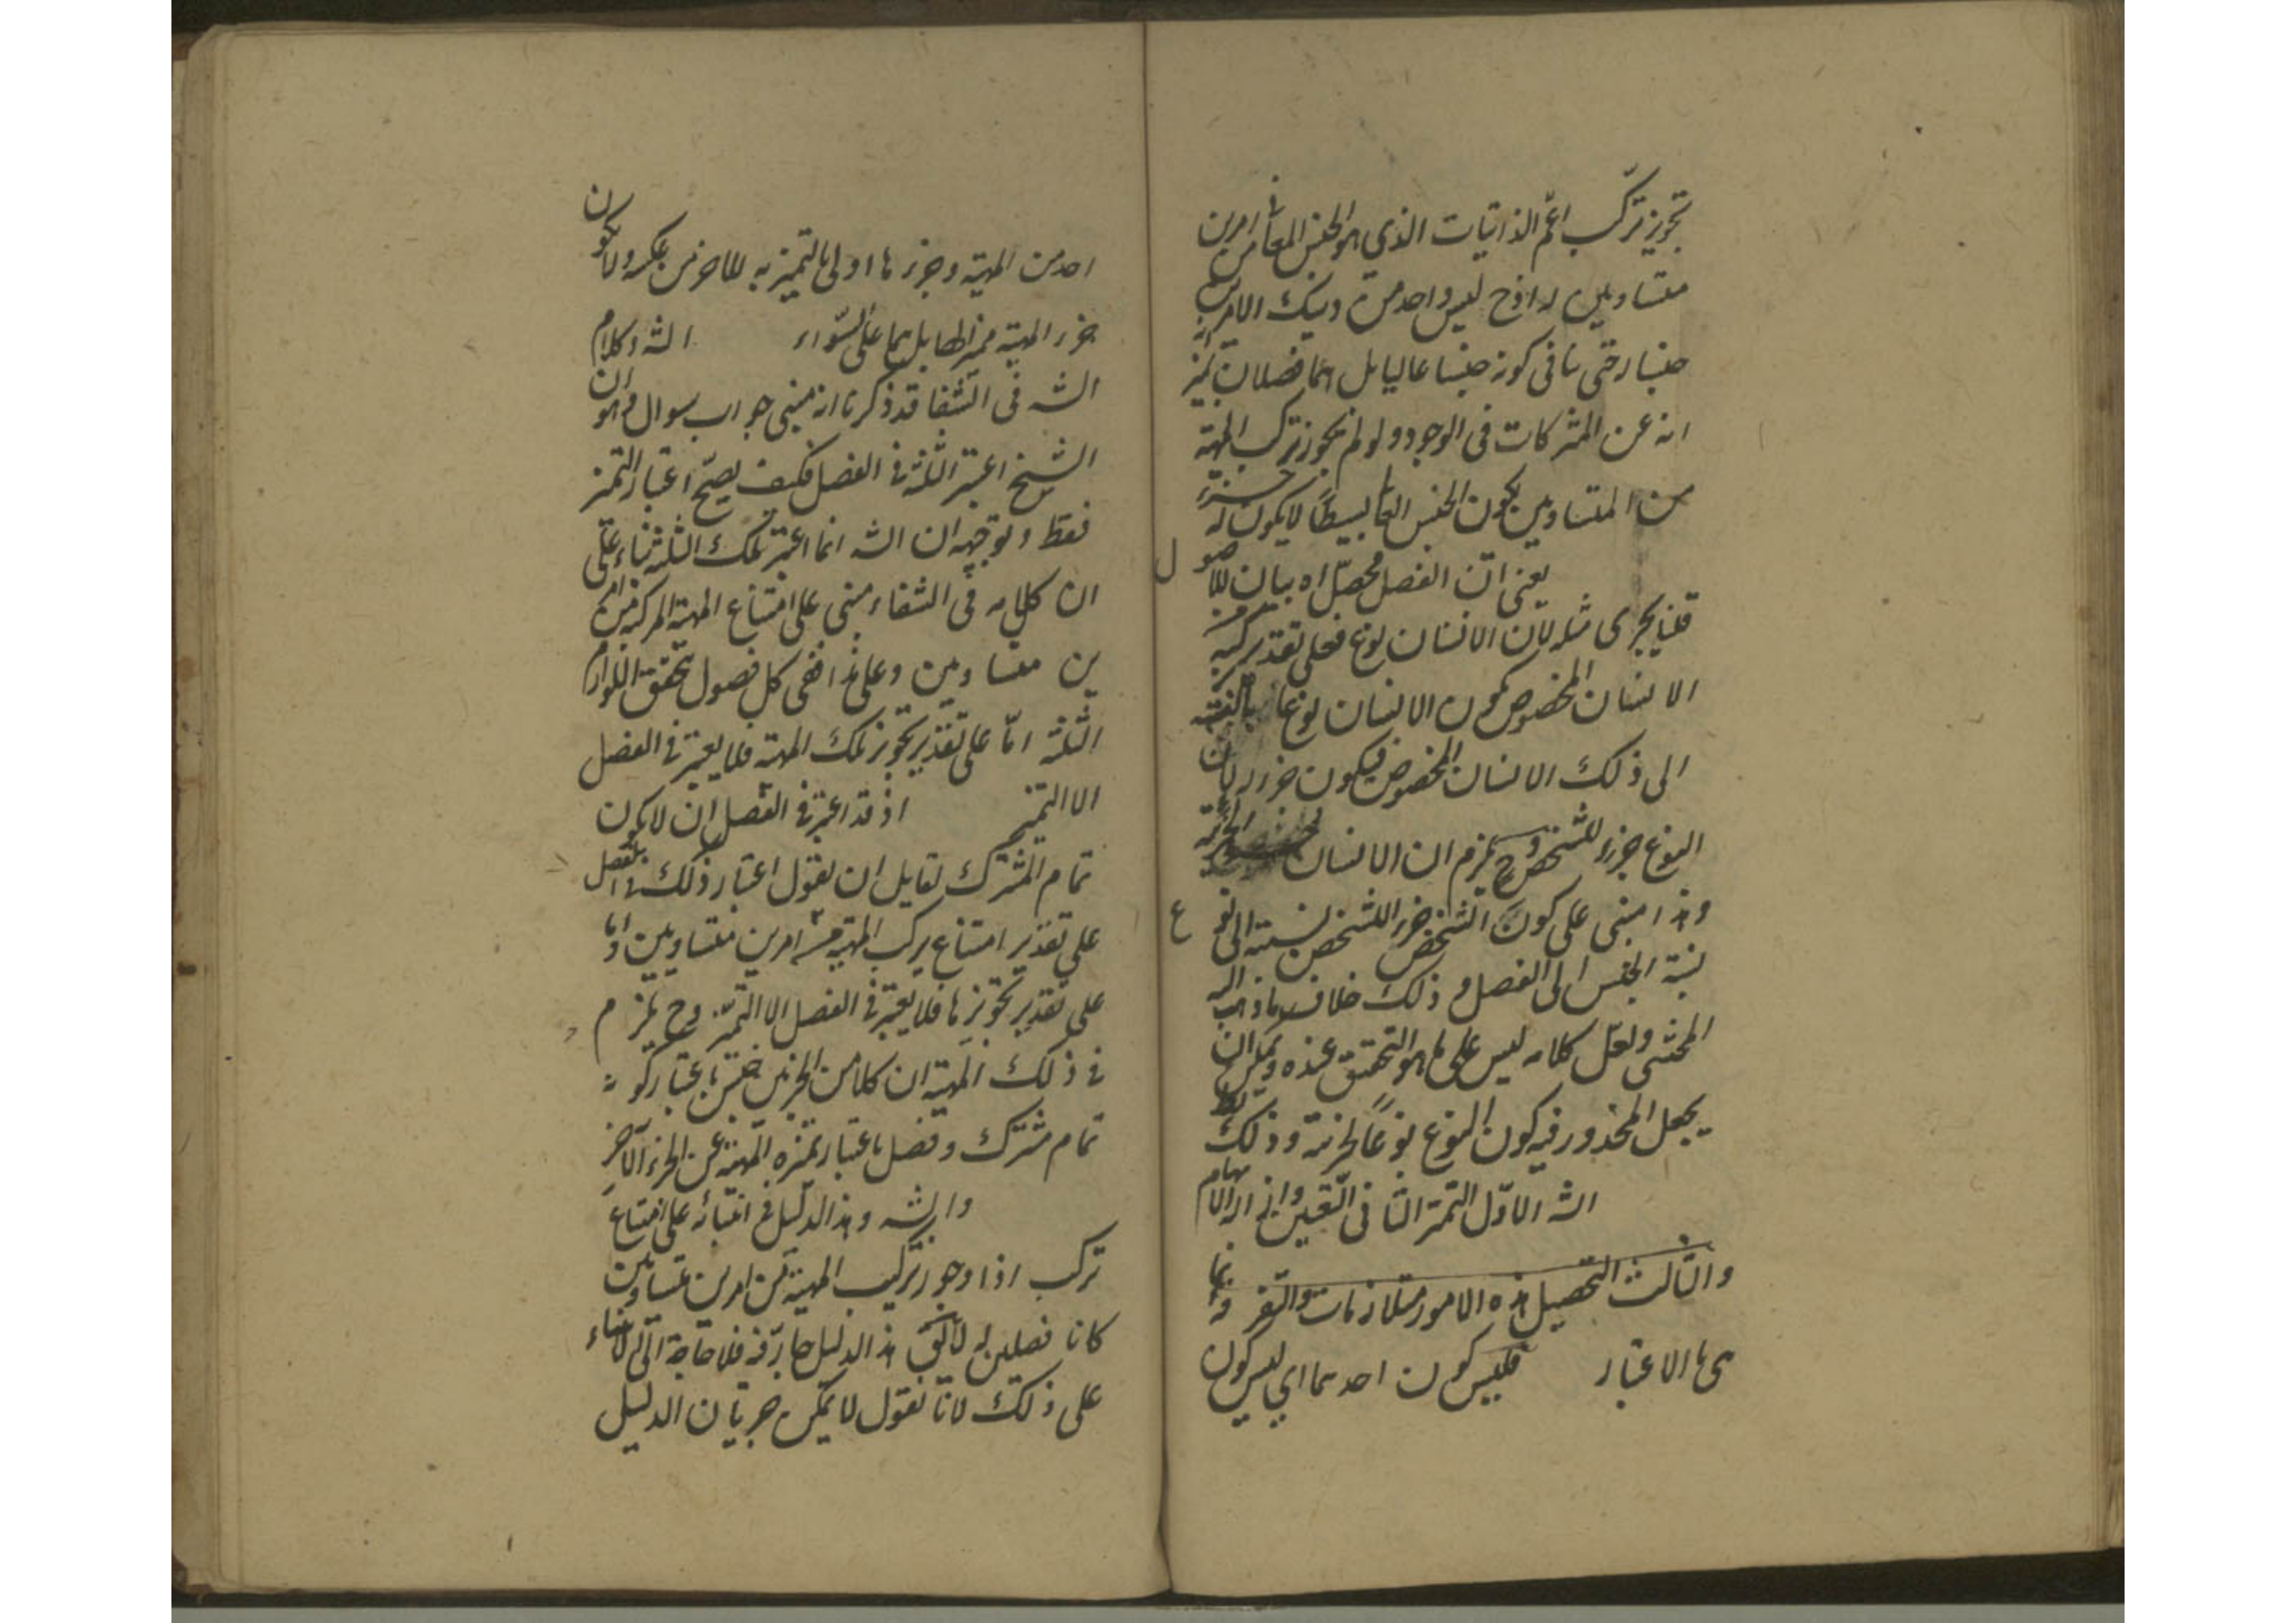 تجويز تركب اعم الذاتيات الذي هو الجنس العالي من امرين
متساويين اذ ح ليس واحد من ذينك الامرين
جنسا حتى ينافى كونه جنسا عاليا بل هما فصلان يميز
انه عن المشركات فى الوجود ولو لم يجوز تركب المهية
من المتساويين يكون الجنس العالي بسيطا لا يكون له جزء
يعنى ان الفصل محصل اه بيان للاصول
قلنا يجرى مثله لان الانسان نوع فعلى تقدير تركبه من
الانسان المخصوص يكون الانسان نوعا بالنسبة
الى ذلك الانسان المخصوص فيكون جزء لان
النوع جزء للشخص وح يلزم ان الانسان
وهذا مبنى على كون الشخص جزء للشخص نسبته الى النوع
نسبة الجنس الى الفصل و ذلك خلاف ما ذهب اليه
المحشى ولعل كلامه ليس على ما هو التحقيق عنده ويمكن ان
يجعل المحذور فيه كون النوع نوعا لجزئه وذلك بط
الشه الاول التميز الثانى التعيين وازالة الابهام
والثالث التحصيل هذه الامور متلازمات والتغير وانما
هى بالاعتبار فليس كون احدهما اي ليس كون
احد من المهية وجزءها اولى بالتميز به للاخر من عكسه ولا يكون
جزء المهية مميزا لها بل هما على السواء الشه وكلام
الشه فى الشفا قد ذكرنا انه مبنى جواب سوال وهو ان
الشيخ اعتبر الثلثة فى الفصل فكيف يصح اعتبار التميز
فقط و توجيهه ان الشه انما اعتبر تلك الثلثة بناء على
ان كلامه فى الشفاء مبنى على امتناع المهية المركبة من امر
ين متساويين وعلى هذا ففى كل فصول يتحقق اللوازم
الثلثة اما على تقدير تجويز تلك المهية فلا يعتبر فى الفصل
الا التميز اذ قد اعتبر فى الفصل ان لا يكون
تمام المشترك لقايل ان يقول اعتبار ذلك فى الفصل
على تقدير امتناع تركب المهية من امرين متساويين واما
على تقدير تجويزها فلا يعتبر فى الفصل الا التميز وح يلزم
فى ذلك المهية ان كلا من الجزئين جنس باعتبار كونه
تمام مشترك وفصل باعتبار تميزه المهية عن الجزء الآخر
وهذا الدليل فى ابتنائه على امتناع
تركب اذا جوز تركيب المهية من امرين متساويين
كانا فصلين لا يقال هذا الدليل جار فيه فلا حاجة الى البناء
على ذلك لانا نقول لا يمكن جريان الدليل